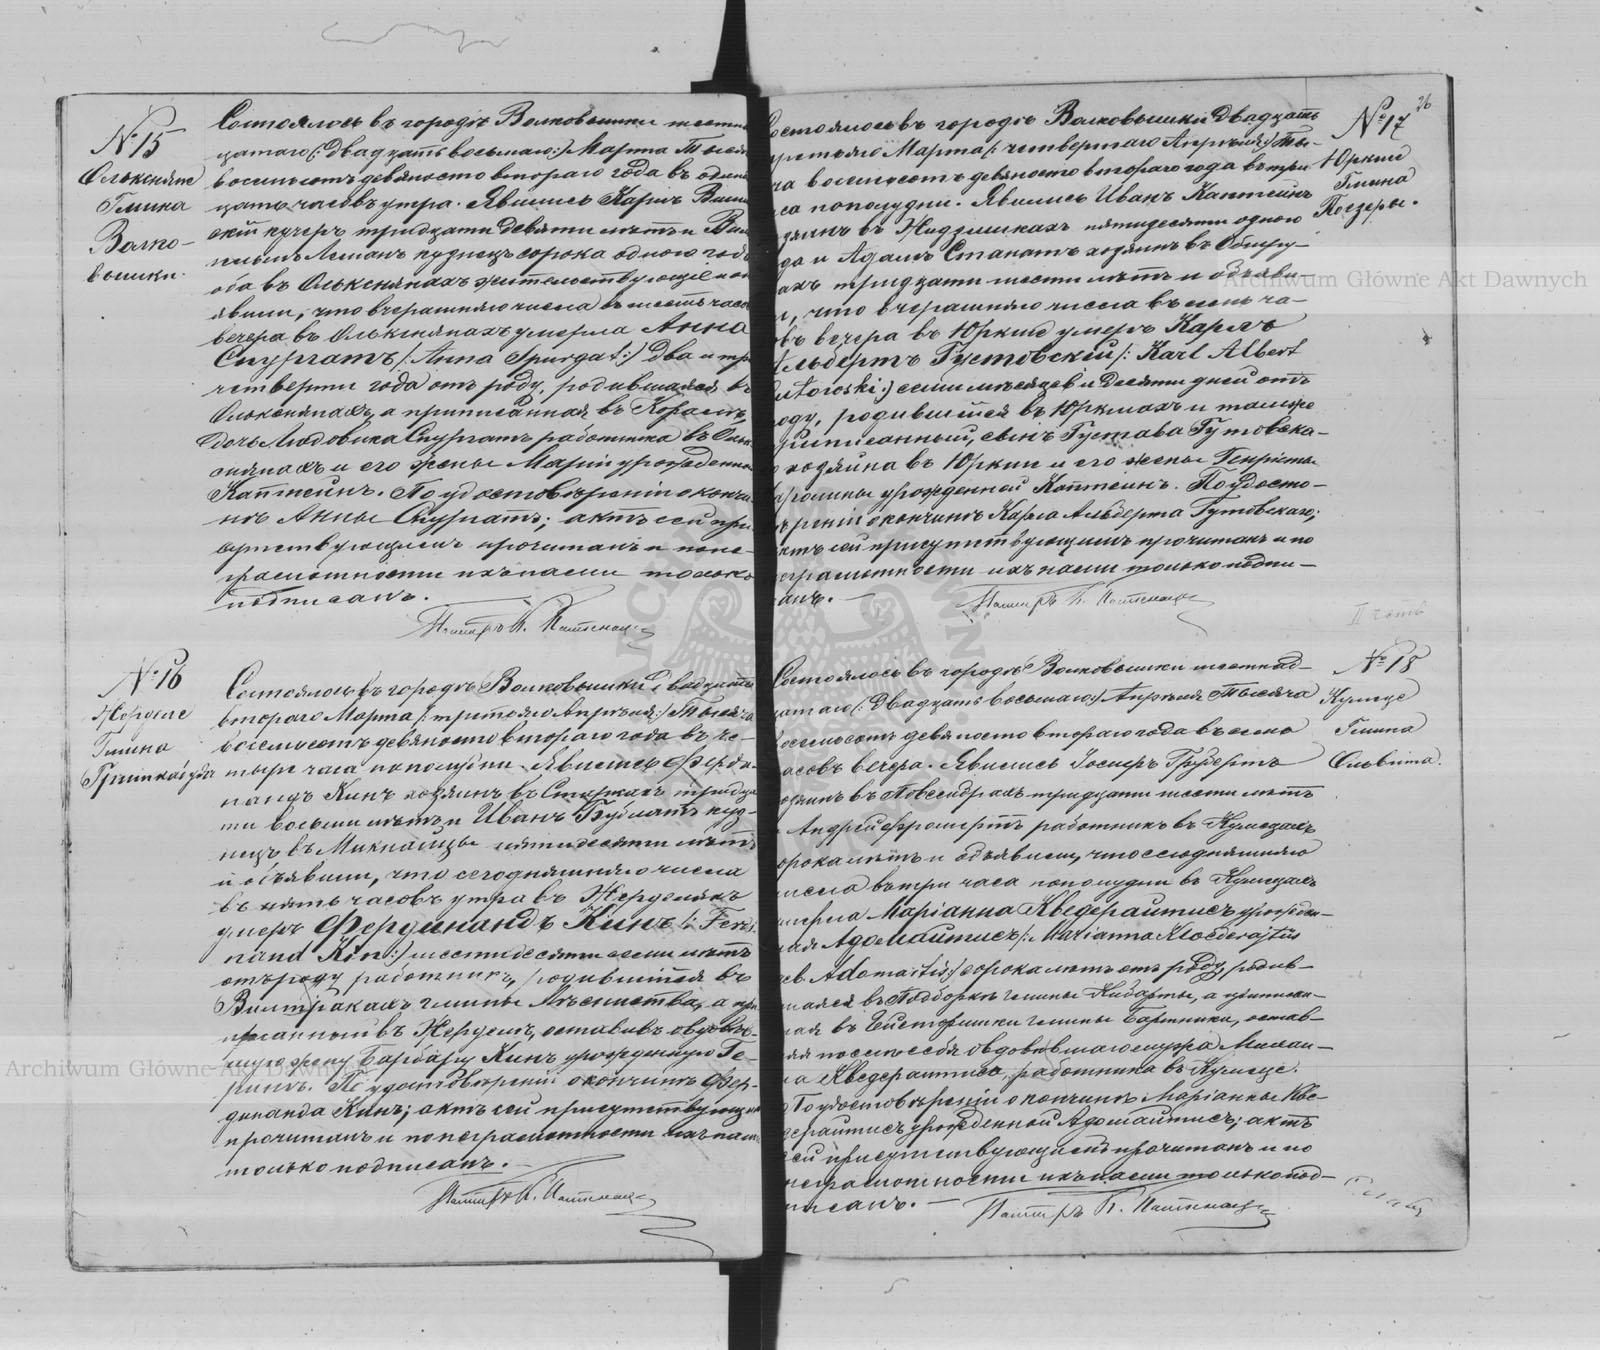 № 15
Ольксняне
Гмина
Волко-
вышки.
Состоялось въ городѣ Волковышки шестна
цатаго (: двадцать восьмаго:) Марта Тысяч
восемьсотъ девяносто втораго года въ один
цать часовъ утра. Явились Карлъ
скій кучеръ тридцати девяти лѣтъ и Виль
гельмъ Леманъ кузнецъ сорока одного год
оба въ Ольксняпахъ жительствующіе и об
явили, что вчерашняго числа въ шесть часо
вечера въ Ольксняпахъ умерла Анна
Спургатъ (: Anna Spurgat:) два и три
четверти года отъ роду, родившаяся въ
Ольксняпахъ, а приписанная въ
дочь Людовика Спургатъ работника въ Ольк
сняпахъ и его жены Маріи урожденной
Каптейнъ. По удостовѣреніи о кончи
нѣ Анны Спургатъ; актъ сей при
сутствующимъ прочитанъ и по не-
грамотности ихъ нами только
подписанъ.
Пасторъ К.
№ 16
Нерделе
Гмина
Состоялось въ городѣ Волковышки двадцать
втораго Марта (: третьяго Апрѣля:) Тысяча
восемьсотъ девяносто втораго года въ че-
тыре часа пополудни. Явились Ферди-
нандъ Кинъ хозяинъ въ тридца
ти восьми лѣтъ и Иванъ куз-
нецъ въ пятидесяти лѣтъ
и объявили, что сегодняшняго числа
въ пять часовъ утра въ
умеръ Фердинандъ Кинъ (: Ferdi
nand Kin:) шестидесяти семи лѣтъ
отъ роду работникъ, родившійся въ
гмины а при
писанный въ оставивъ овдовѣв-
шую жену Барбару Кинъ урожденную Ге-
рингъ. По удостовѣреніи о кончинѣ Фер-
динанда Кинъ; актъ сей присутствующимъ
прочитанъ и по неграмотности ихъ нами
только подписанъ.
Пасторъ К.
26
№ 17
Юркше
Гмина
Поезеры.
остоялось въ городѣ Волковышки Двадцать
третьяго Марта (: четвертаго Апрѣля:) Ты-
ча восемьсотъ девяносто втораго года въ три
са пополудни. Явились Иванъ Каптейнъ
озяинъ въ пятидесяти одного
да и Адамъ Станатъ хозяинъ въ
ахъ тридцати шести лѣтъ и объяви-
и, что вчерашняго числа въ семь ча-
овъ вечера въ Юркше умеръ Карлъ
Альбертъ Гутовскій (: Karl Albert
utowski:) семи мѣсяцевъ и десяти дней отъ
роду, родившійся въ Юркшахъ и тамже
риписанный, сынъ Густава Гутовска-
о хозяина въ Юркши и его жены Генріеты
аролины урожденной Каптейнъ. По удосто-
ѣреніи о кончинѣ Карла Альберта Гутовскаго;
актъ сей присутствующимъ прочитанъ и по
еграмотности ихъ нами только подпи-
анъ.
Пасторъ К.
№ 18
Гмина
Ольвита.
Состоялось въ городѣ Волковышки шестнад-
цатаго (: Двадцать восьмаго:) Апрѣля Тысяча
восемьсотъ девяносто втораго года въ семь
асовъ вечера. Явились Іосифъ
озяинъ въ тридцати шести лѣтъ
Андрей работникъ въ
орока лѣтъ и объявили, что сегодняшняго
исла въ три часа пополудни въ
умерла Маріанна Кведерайтисъ урожден-
ная Адомайтисъ (: Marianna Kwederajtis
геb Adomaitis:) сорока лѣтъ отъ роду, родив-
шаяся въ гмины Кибарты, а приписан-
ная въ гмины Бартники, остав-
ляя послѣ себя овдовѣвшаго мужа
а Кведерайтиса, работника въ
По удостовѣреніи о кончинѣ Маріанны Кве-
дерайтисъ урожденной Адомайтисъ; актъ
сей присутствующимъ прочитанъ и по
неграмотности ихъ нами только под-
писанъ.
Пасторъ К.
Archiwum Główne Akt Dawnych
Archiwum Główne Akt Dawnych